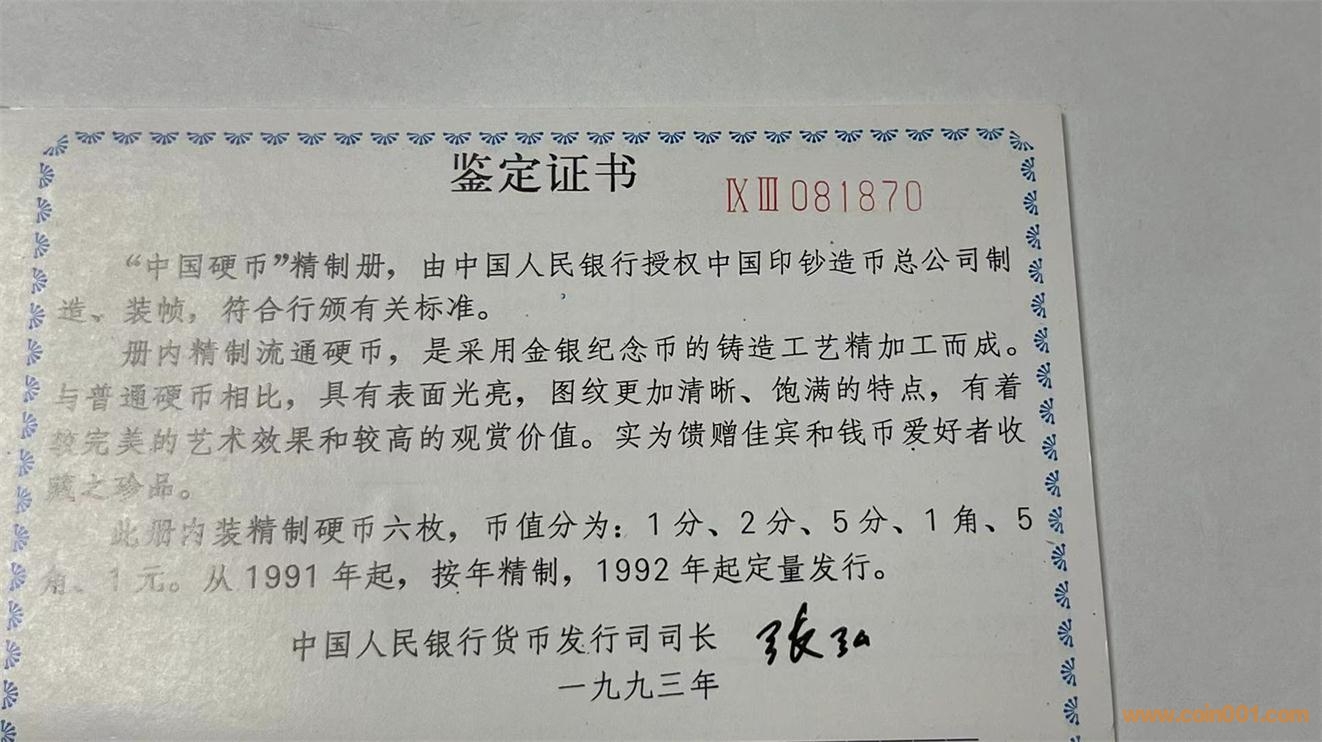 鉴定证书
ⅨⅢ081870
“中国硬币”精制册，由中国人民银行授权中国印钞造币总公司制
造、装帧，符合行颁有关标准。
册内精制流通硬币，是采用金银纪念币的铸造工艺精加工而成。
与普通硬币相比，具有表面光亮，图纹更加清晰、饱满的特点，有着
较完美的艺术效果和较高的观赏价值。实为馈赠佳宾和钱币爱好者收
藏之珍品。
此册内装精制硬币六枚，币值分为：1分、2分、5分、1角、5
角、1元。从1991年起，按年精制，1992年起定量发行。
中国人民银行货币发行司司长 张弘
一九九三年
www.coin001.com